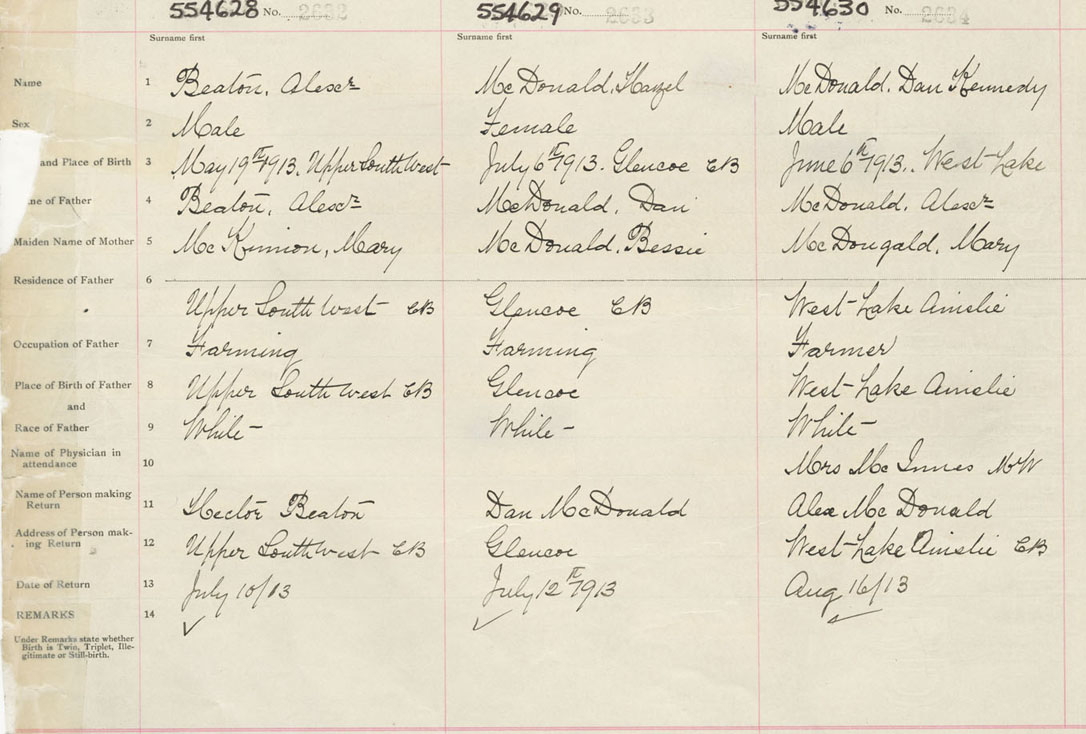 554628 No. 2632 554629 No. 2633 554630 No. 2634
Surname first Surname first Surname first
Name 1 Beaton, Alexr McDonald, Hazel McDonald, Dan Kennedy
Sex 2 Male Female Male
and Place of Birth 3 May 19th 1913, Upper Southwest July 6th 1913. Glencoe CB June 6th 1913.. West Lake
ne of Father 4 Beaton, Alexr McDonald, Dan McDonald, Alexr
Maiden Name of Mother 5 McKinnon, Mary McDonald, Bessie McDougald, Mary
Residence of Father 6
Upper Southwest CB Glencoe CB West Lake Ainslie
Occupation of Father 7 Farming Farming Farmer
Place of Birth of Father 8 Upper Southwest CB Glencoe West Lake Ainslie
and
Race of Father 9 White White White
Name of Physician in
attendance 10 Mrs McInnes MW
Name of Person making
Return 11 Hector Beaton Dan McDonald Alex McDonald
Address of Person mak-
ing Return 12 Upper Southwest CB Glencoe West Lake Ainslie CB
Date of Return 13 July 10/13 July 12th 1913 Aug 16/13
REMARKS 14
Under Remarks state whether
Birth is Twin, Triplet, Ille-
gitimate or Still-birth.